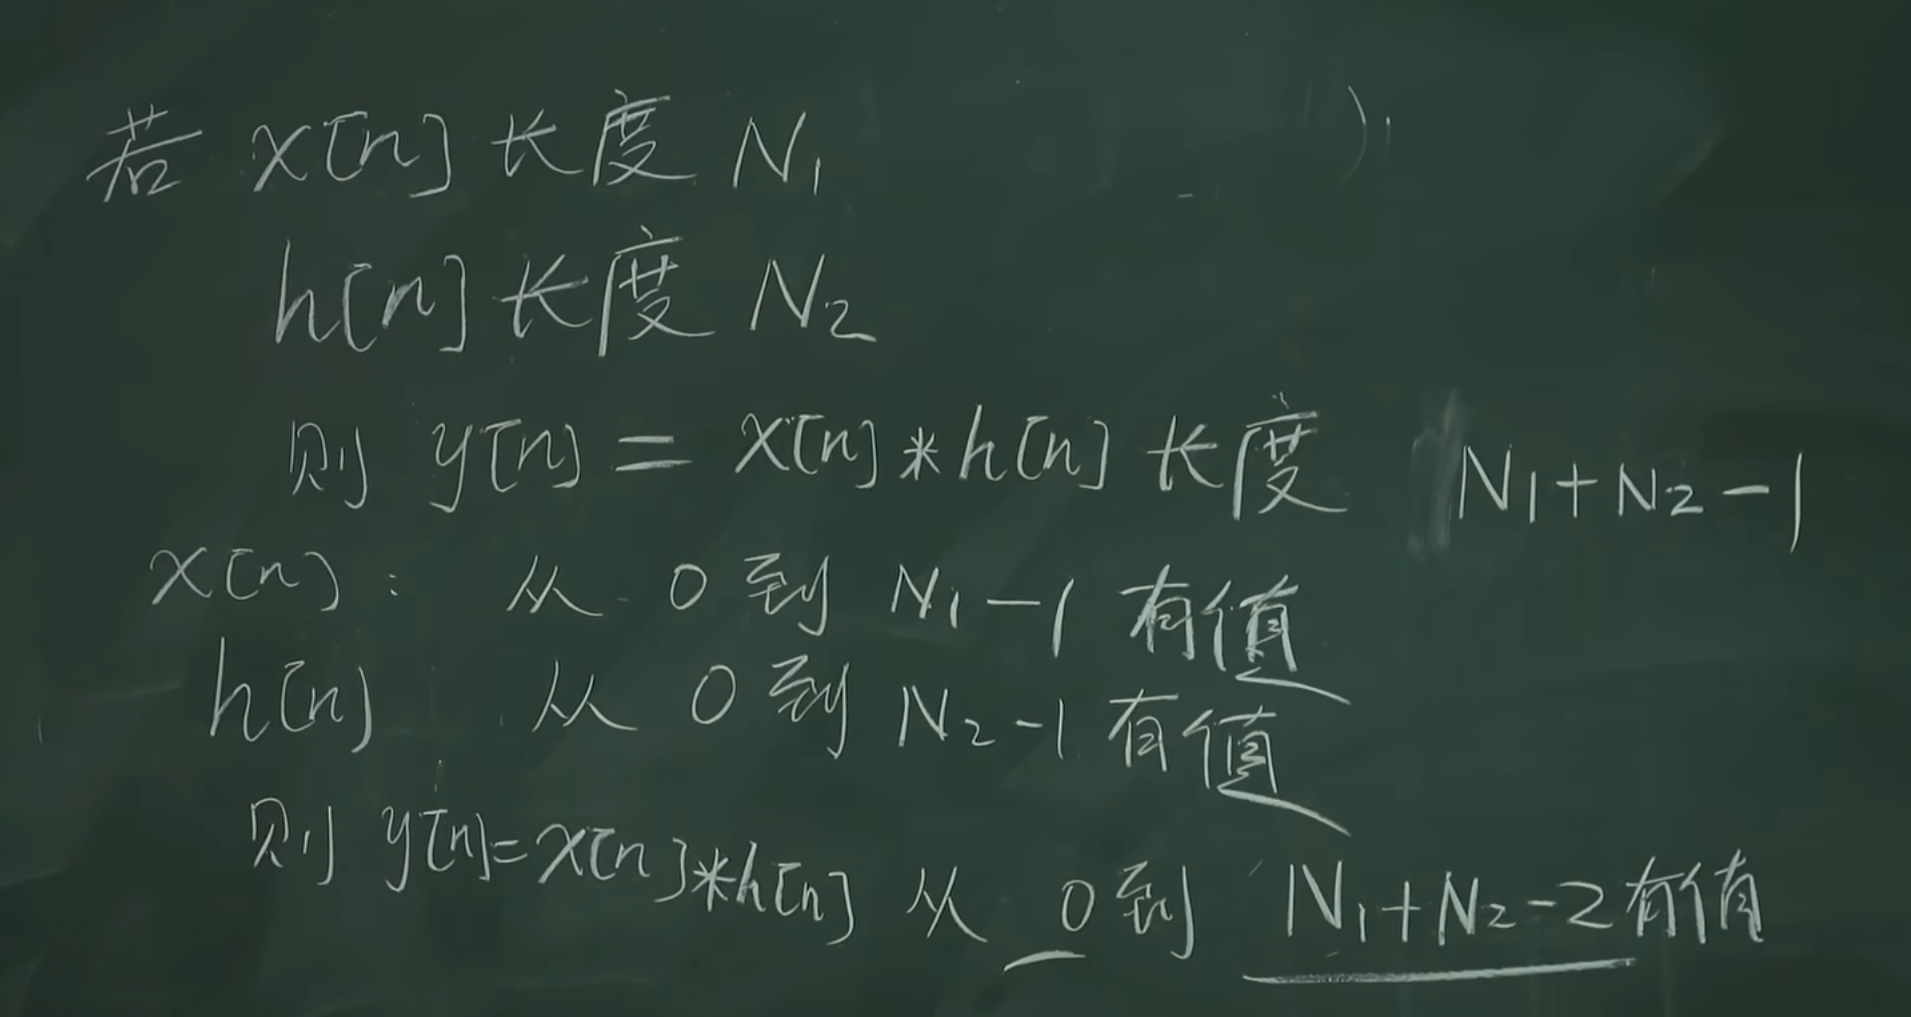 若 x[n] 长度 N₁
h[n] 长度 N₂
则 y[n] = x[n] * h[n] 长度 N₁+N₂-1
x[n]: 从 0 到 N₁-1 有值
h[n] 从 0 到 N₂-1 有值
则 y[n]=x[n]*h[n] 从 0 到 N₁+N₂-2 有值